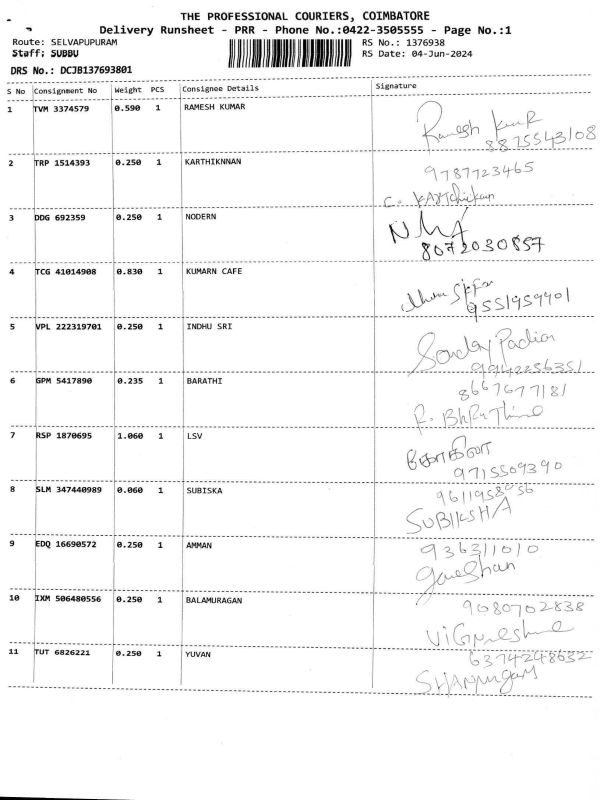 THE PROFESSIONAL COURIERS, COIMBATORE
Delivery Runsheet - PRR - Phone No.:0422-3505555 - Page No.:1
Route: SELVAPUPURAM RS No.: 1376938
Staff: SUBBU RS Date: 04-Jun-2024
DRS No.: DCJB137693801
S No Consignment No Weight PCS Consignee Details Signature
1 TVM 3374579 0.590 1 RAMESH KUMAR
Ramesh
8875543108
2 TRP 1514393 0.250 1 KARTHIKNNAN
9787723465
C.
3 DDG 692359 0.250 1 NODERN
8072030857
4 TCG 41014908 0.830 1 KUMARN CAFE
9551959401
5 VPL 222319701 0.250 1 INDHU SRI
9942256351
6 GPM 5417890 0.235 1 BARATHI
8667677181
7 RSP 1870695 1.060 1 LSV
கோகிலா
9715509390
8 SLM 347440989 0.060 1 SUBISKA
9611958956
SUBIKSHA
9 EDQ 16690572 0.250 1 AMMAN
936311010
Ganeshan
10 IXM 506480556 0.250 1 BALAMURAGAN
9080702838
11 TUT 6826221 0.250 1 YUVAN
6374248632